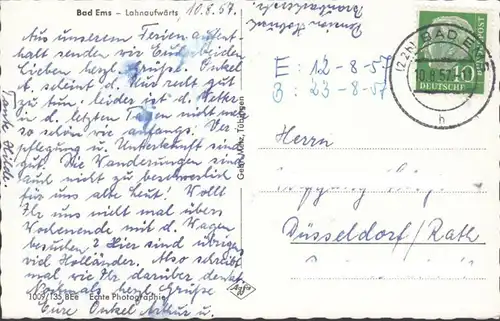 Bad Ems – Lahnaufwärts 10.8.57.
Aus unserem Ferien aufent-
halt senden wir Euch beiden
Lieben herzl. Grüsse. Onkel
A. scheint d. Aus recht gut
zu tun; leider ist d. Wetter
in d. letzten Tagen nicht mehr
so schön wie anfangs. Ver-
pflegung u. Unterkunft sind
gut. Die Wanderungen sind
nicht zu beschwerlich
für uns alte Leut! Wollt
Ihr uns nicht mal übers
Wochenende mit d. Wagen
besuchen? Hier sind übrigens
viel Holländer. Also schreibt
mal wie Ihr darüber denkt.
Nochmals herzl. Grüsse
Eure Onkel Arthur u.
Tante Hilde.
1009/135 BEe Echte Photographie
Gebr. Metz, Tübingen
E: 12-8-57
B: 23-8-57
(22b) BAD EMS
10.8.57
h
POST
10
DEUTSCHE
Herrn
Düsseldorf/Rath